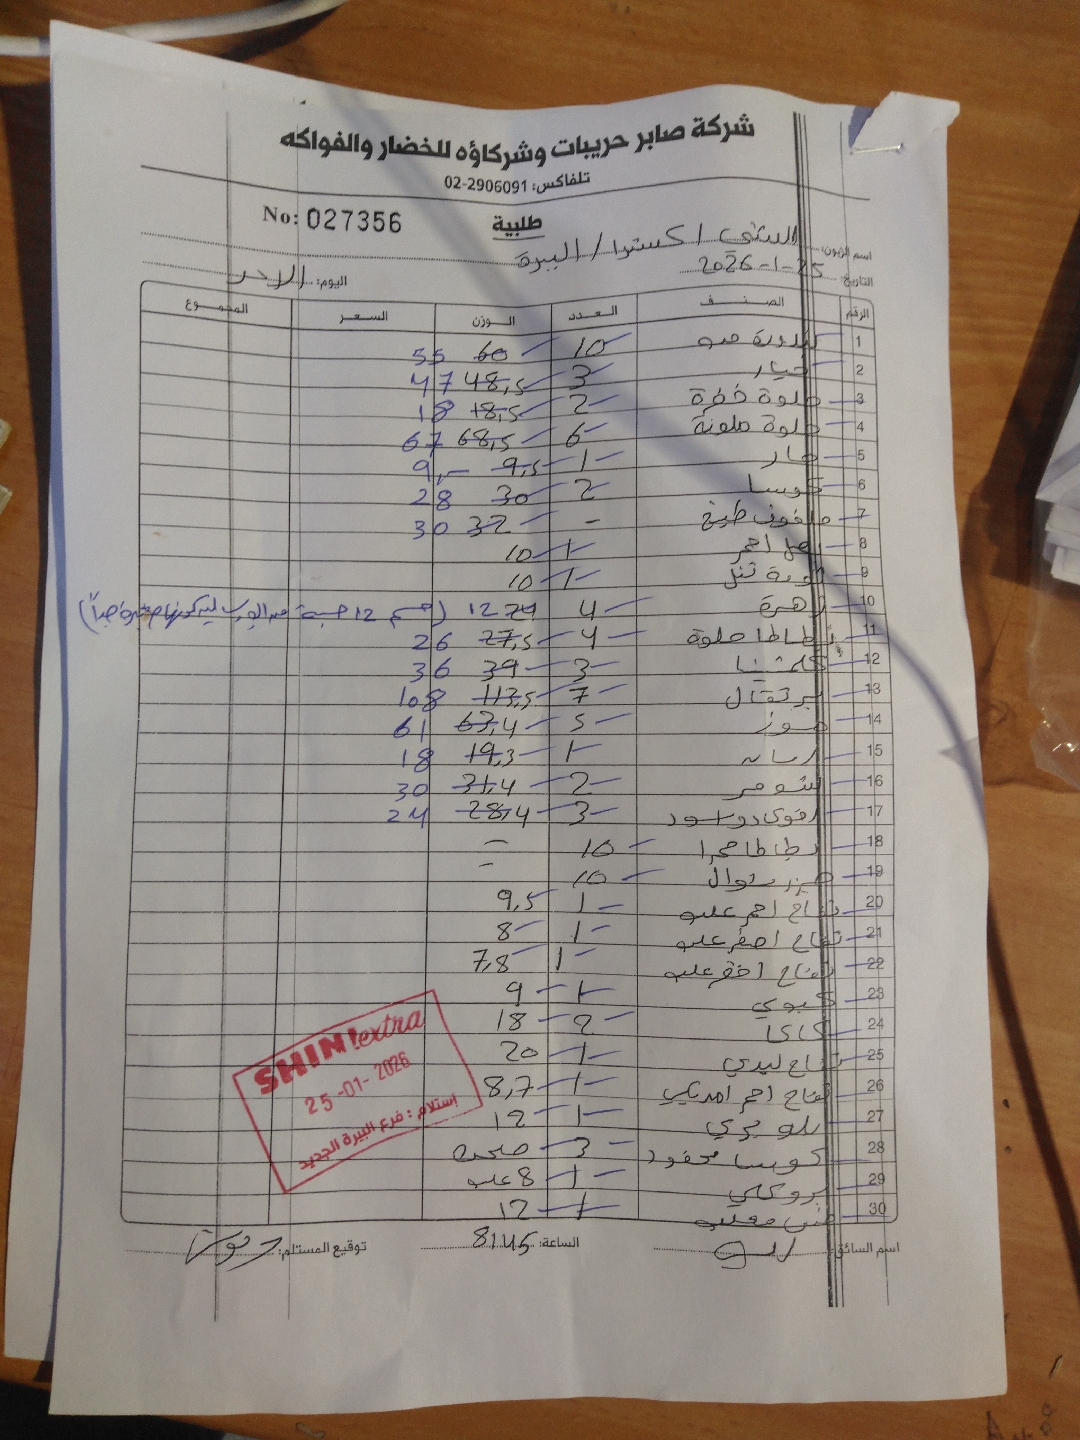 شركة صابر حريبات وشركاؤه للخضار والفواكه
تلفاكس: 02-2906091
No: 027356
طلبية
اسم الزبون: الشني اكسترا / البيرة
التاريخ: 2026-1-25 اليوم: الاحد
الرقم الصنف العدد الوزن السعر المجموع
1 بندورة 10 60 55
2 خيار 3 48,5 47
3 حلوة خضرة 2 18,5 18
4 حلوة ملونة 6 68,5 67
5 حار 1 9,5 9,-
6 كوسا 2 30 28
7 ملفوف طبخ - 32 30
8 بصل احمر 1 10
9 1 10
10 زهرة 4 24 12 (خصم 12 حبة جداً)
11 بطاطا حلوة 4 27,5 26
12 كلمنتينا 3 39 36
13 برتقال 7 113,5 108
14 موز 5 63,4 61
15 1 19,3 18
16 شومر 2 31,4 30
17 افوكادو اسود 3 28,4 24
18 بطاطا حمرا 10 -
19 10 -
20 تفاح احمر علب 1 9,5
21 تفاح اصفر علب 1 8
22 تفاح اخضر علب 1 7,8
23 كيوي 1 9
24 كاكا 2 18
25 تفاح ليدي 1 20
26 تفاح احمر امريكي 1 8,7
27 بلو بيري 1 12
28 كوسا محفور 3 صحن
29 بروكلي 1 8 علب
30 1 12
اسم السائق: الساعة: 8:45 توقيع المستلم:
SHINI extra
25-01-2026
إستلام : فرع البيرة الجديد